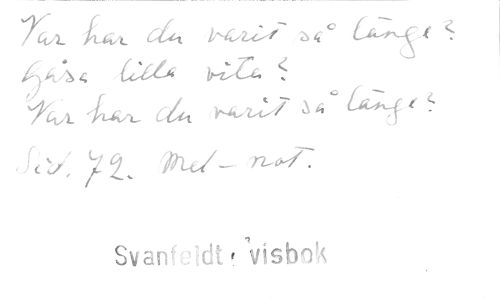 Var har du varit så länge?
Gåsa lilla vita?
Var har du varit så länge?
Sid. 72. Mel-not.
Svanfeldt, visbok